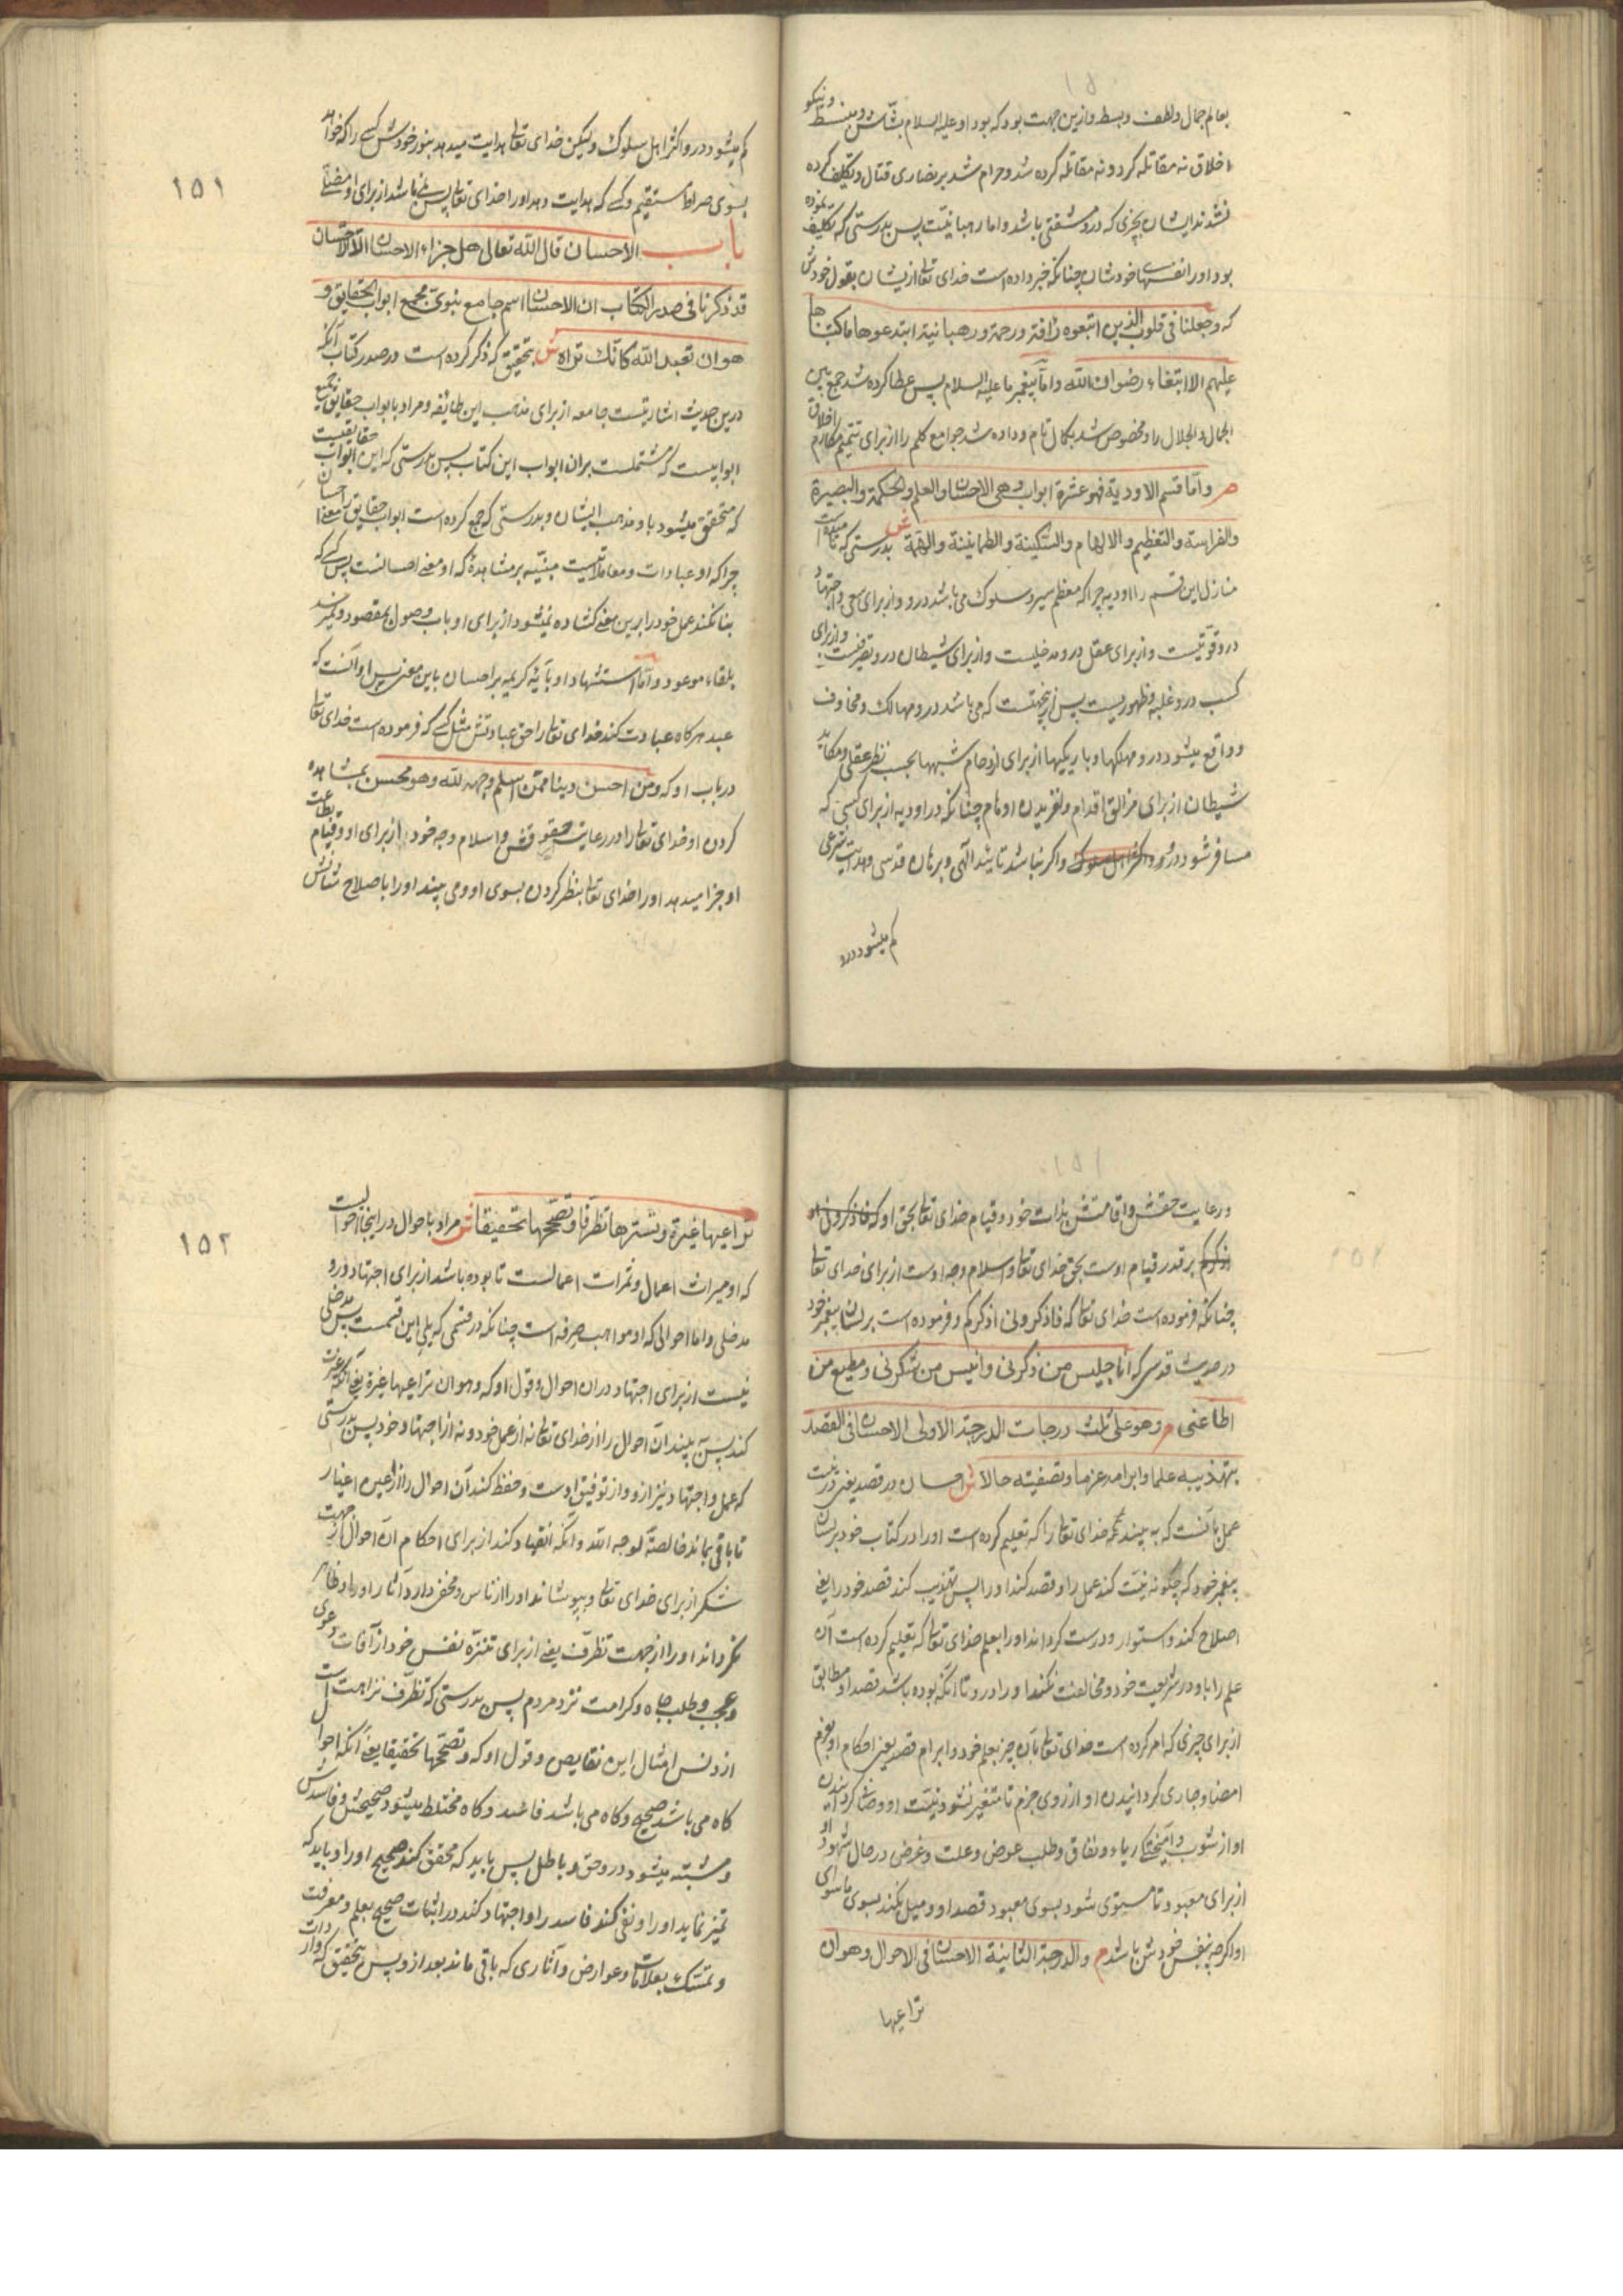 بعالم جمال و لطف و بسط و ازین جهت بود که بود او علیه السلام بشّاش و منبسط و نیکو
اخلاق نه مقاتله کرد و نه مقاتله کرده شد و حرام شد بر نصاری قتال و تکلیف کرده
نشدند ایشان بچیزی که درو مشقتی باشد و اما رهبانیّت پس بدرستی که تکلیف نموده
بود او را نفسهای خودشان چنانکه خبر داده است خدای تعالی ازیشان بقول خودش
که وجعلنا فی قلوب الذین اتبعوه رافة ورحمة ورهبانیة ابتدعوها ما کتبناها
علیهم الا ابتغاء رضوان الله و امّا پیغمبر ما علیه السلام پس عطا کرده شد جمع بین
الجمال و الجلال را و مخصوص شد بکمال تام و داده شد جوامع کلم را از برای تتمیم مکارم اخلاق
م وامّا قسم الاودیة فهو عشرة ابواب وهی الاحسان والعلم والحکمة والبصیرة
والفراسة والتعظیم والالهام والسّکینة والطمانینة والهمّة ش بدرستی که نامیده است
منازل این قسم را اودیه چرا که معظم سیر و سلوک می باشد درو و از برای سعی و اجتهاد
درو قوّتیست و از برای عقل درو مدخلیست و از برای شیطان درو تصرفیست و از برای
کسب درو غلبه و ظهوریست پس ازینجهتست که می باشد درو مهالک و مخاوف
و واقع میشود درو مهلکها و باریکیها از برای ازدحام شبهها بحسب نظر عقلی و مکاید
شیطان از برای مزالق اقدام و لغزیدن اوهام چنانکه در اودیه از برای کسی که
مسافر شود درو و اکثر اهل سلوک و اکر نباشد تایید الهی و برهان قدسی و هدایت شرعی
کم میشود درو
۱۵۱
کم میشود درو اکثر اهل سلوک و لیکن خدای تعالی هدایت میدهد بنور خودش کسی را که خواهد
بسوی صراط مستقیم و کسی که هدایت دهد او را خدای تعالی پس نمی باشد از برای او مضلّی
باب الاحسان قال الله تعالی هل جزاء الاحسان الّا الاحسان
قد ذکرنا فی صدر الکتاب ان الاحسان اسم جامع نبویّ یجمع ابواب الحقایق و
هو ان تعبد الله کانّک تراه ش بتحقیق که ذکر کرده است در صدر کتاب آنکه
درین حدیث اشارتیست جامعه از برای مذهب این طائفه و مراد بابواب حقایق جمیع
ابوابیست که مشتملست بران ابواب این کتاب پس بدرستی که این ابواب حقایقیست
که متحقق میشود باو مذهب ایشان و بدرستی که جمع کرده است ابواب حقایق را معنی احسان
چرا که او عبادات و معاملاتیست مبنیّه بر مشاهدۀ که او معنی احسانست پس کسی که
بنا نکند عمل خود را برین معنی کشاده نمیشود از برای او باب وصول بمقصود و نمیرسد
بلقاء موعود و امّا استشهاد او بآیه کریمه بر احسان باین معنی پس او آنست که
عبد هر کاه عبادت کند خدای تعالی را حق عبادتش مثل کسی که فرموده است خدای تعالی
در باب او که ومن احسن دینا ممّن اسلم وجهه لله وهو محسن بمشاهده
کردن او خدای تعالی را و در رعایت حقوقش و اسلام وجه خود از برای او و قیام بطاعت
او جزا میدهد او را خدای تعالی بنظر کردن بسوی او و می بیند او را باصلاح شانش
و رعایت حقش و اقامتش بذات خود و قیام خدای تعالی بحق او که فاذکرونی او
اذکرکم بر قدر قیام اوست بحق خدای تعالی و اسلام وجه اوست از برای خدای تعالی
چنانکه فرموده است خدای تعالی که فاذکرونی اذکرکم و فرموده است بر لسان پیغمبر خود
در حدیث قدسی که انا جلیس من ذکرنی وانیس من شکرنی ومطیع من
اطاعنی م وهو علی ثلث درجات الدرجة الاولی الاحسان فی القصد
بتهذیبه علما وابرامه عزما وتصفیته حالا ش احسان در قصد یعنی در نیت
عمل بآنست که به بیند خدای تعالی را که تعلیم کرده است او را در کتاب خود بر لسان
پیغمبر خود که چکونه نیّت کند عمل را و قصد کند او را پس تهذیب کند قصد خود را یعنی
اصلاح کند و استوار و درست کرداند او را بعلم خدای تعالی که تعلیم کرده است آن
علم را باو در شریعت خود و مخالفت نکند او را درو تا آنکه بوده باشد قصد او مطابق
از برای چیزی که امر کرده است خدای تعالی بآن چیز بعلم خود و ابرام قصد یعنی احکام او بعزم
امضا و جاری کردانیدن او از روی جزم تا متغیر نشود نیّت او و صاف کردانیدن
او از شوب و آمیختگی ریاء و نفاق و طلب عوض و علت و غرض در حال شهود او
از برای معبود تا مستوی شود بسوی معبود قصد او و میل نکند بسوی ماسوای
او اکرچه نفس خودش باشد م والدرجة الثانیة الاحسان فی الاحوال وهو ان
تراعیها
۱۵۲
تراعیها غیرة وتسترها تظرّفا وتصحّحها تحقیقا ش مراد باحوال در اینجا احوالیست
که او میراث اعمال و ثمرات اعمالست تا بوده باشد از برای اجتهاد درو
مدخلی و اما احوالی که او مواهب صرفه است چنانکه در قسمی که یلی این قسمست پس مدخلی
نیست از برای اجتهاد در ان احوال و قول او که وهو ان تراعیها غیرة یعنی آنکه غیرت
کند پس بیند آن احوال را از خدای تعالی نه از عمل خود و نه از اجتهاد خود پس بدرستی
که عمل و اجتهاد نیز ازو و از توفیق اوست و حفظ کند آن احوال را از اعین اغیار
تا باقی بماند خالصةً لوجه الله و آنکه انقیاد کند از برای احکام آن احوال از جهت
شکر از برای خدای تعالی و بپوشاند او را از ناس و مخفی دارد آثار او را و ظاهر
نکرداند او را از جهت تظرّف یعنی از برای تنزّه نفس خود از آفات دعوی
و عجب و طلب جاه و کرامت نزد مردم پس بدرستی که تظرّف نزاهت است
از دنس امثال این نقایص و قول او که وتصحّحها تحقیقا یعنی آنکه احوال
کاه می باشد صحیح و کاه می باشد فاسد و کاه مختلط میشود صحیحش و فاسدش
و مشتبه میشود درو حق و باطل پس باید که محقق کند صحیح او را و باید که
تمیز نماید او را و نفی کند فاسد را و اجتهاد کند در اثبات صحیح بعلم و معرفت
و تمسّک بعلامات و عوارض و آثاری که باقی ماند بعد ازو پس بتحقیق که واردات